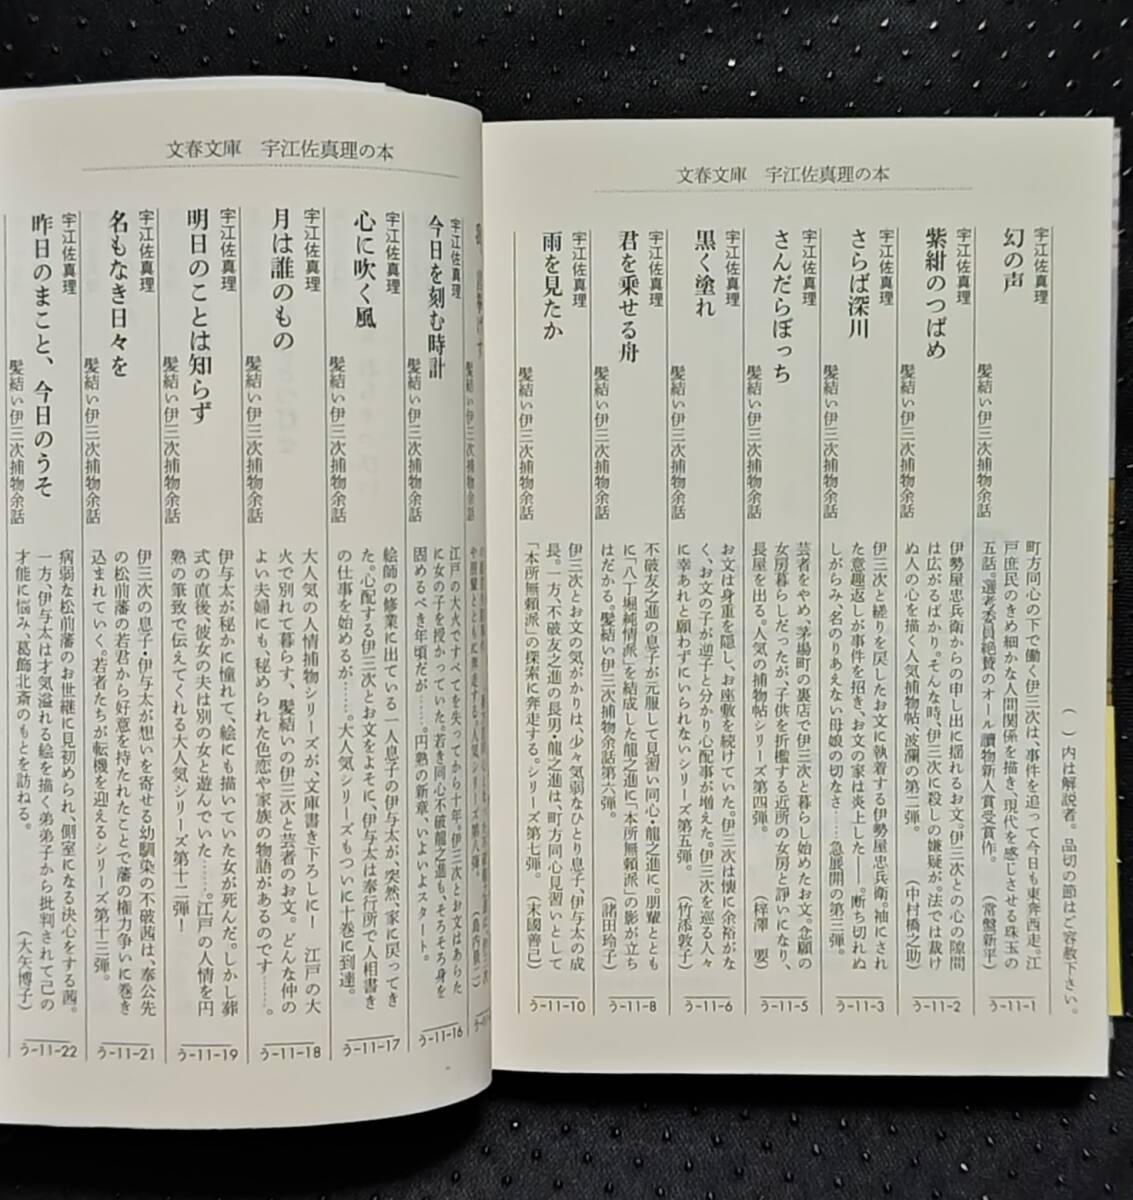 文春文庫　宇江佐真理の本
（　）内は解説者。品切の節はご容赦下さい。
宇江佐真理
幻の声
髪結い伊三次捕物余話
町方同心の下で働く伊三次は、事件を追って今日も東奔西走。江
戸庶民のきめ細かな人間関係を描き、現代を感じさせる珠玉の
五話。選考委員絶賛のオール讀物新人賞受賞作。　（常盤新平）
う-11-1
宇江佐真理
紫紺のつばめ
髪結い伊三次捕物余話
伊勢屋忠兵衛からの申し出に揺れるお文。伊三次との心の隙間
は広がるばかり。そんな時、伊三次に殺しの嫌疑が。法では裁け
ぬ人の心を描く人気捕物帖・波瀾の第二弾。　（中村橋之助）
う-11-2
宇江佐真理
さらば深川
髪結い伊三次捕物余話
伊三次と縒りを戻したお文に執着する伊勢屋忠兵衛。袖にされ
た意趣返しが事件を招き、お文の家は炎上した——。断ち切れぬ
しがらみ、名のりあえない母娘の切なさ……急展開の第三弾。
う-11-3
宇江佐真理
さんだらぼっち
髪結い伊三次捕物余話
芸者をやめ、茅場町の裏店で伊三次と暮らし始めたお文。念願の
女房暮らしだったが、子供を折檻する近所の女房と諍いになり、
長屋を出る。人気の捕物帖シリーズ第四弾。　（梓澤　要）
う-11-5
宇江佐真理
黒く塗れ
髪結い伊三次捕物余話
お文は身重を隠し、お座敷を続けていた。伊三次は懐に余裕がな
く、お文の子が逆子と分かり心配事が増えた。伊三次を巡る人々
に幸あれと願わずにいられないシリーズ第五弾。　（竹添敦子）
う-11-6
宇江佐真理
君を乗せる舟
髪結い伊三次捕物余話
不破友之進の息子が元服して見習い同心・龍之進に。朋輩ととも
に「八丁堀純情派」を結成した龍之進に「本所無頼派」の影が立ち
はだかる。髪結い伊三次捕物余話第六弾。　（諸田玲子）
う-11-8
宇江佐真理
雨を見たか
髪結い伊三次捕物余話
伊三次とお文の気がかりは、少々気弱なひとり息子、伊与太の成
長。一方、不破友之進の長男・龍之進は、町方同心見習いとして
「本所無頼派」の探索に奔走する。シリーズ第七弾。　（末國善己）
う-11-10
文春文庫　宇江佐真理の本
髪結い伊三次捕物余話
や朋輩とともに奔走する。人気シリーズ第八弾。　（島内景二）
宇江佐真理
今日を刻む時計
髪結い伊三次捕物余話
江戸の大火ですべてを失ってから十年。伊三次とお文はあらた
に女の子を授かっていた。若き同心不破龍之進も、そろそろ身を
固めるべき年頃だが……。円熟の新章、いよいよスタート。
う-11-16
宇江佐真理
心に吹く風
髪結い伊三次捕物余話
絵師の修業に出ている一人息子の伊与太が、突然、家に戻ってき
た。心配する伊三次とお文をよそに、伊与太は奉行所で人相書き
の仕事を始めるが……。大人気シリーズもついに十巻に到達。
う-11-17
宇江佐真理
月は誰のもの
髪結い伊三次捕物余話
大人気の人情捕物シリーズが、文庫書き下ろしに！　江戸の大
火で別れて暮らす、髪結いの伊三次と芸者のお文。どんな仲の
よい夫婦にも、秘められた色恋や家族の物語があるのです……。
う-11-18
宇江佐真理
明日のことは知らず
髪結い伊三次捕物余話
伊与太が秘かに憧れて、絵にも描いていた女が死んだ。しかし葬
式の直後、彼女の夫は別の女と遊んでいた……。江戸の人情を円
熟の筆致で伝えてくれる大人気シリーズ第十二弾！
う-11-19
宇江佐真理
名もなき日々を
髪結い伊三次捕物余話
伊三次の息子・伊与太が想いを寄せる幼馴染の不破茜は、奉公先
の松前藩の若君から好意を持たれたことで藩の権力争いに巻き
込まれていく。若者たちが転機を迎えるシリーズ第十三弾。
う-11-21
宇江佐真理
昨日のまこと、今日のうそ
髪結い伊三次捕物余話
病弱な松前藩のお世継に見初められ、側室になる決心をする茜。
一方、伊与太は才気溢れる絵を描く弟弟子から批判されて己の
才能に悩み、葛飾北斎のもとを訪ねる。　（大矢博子）
う-11-22